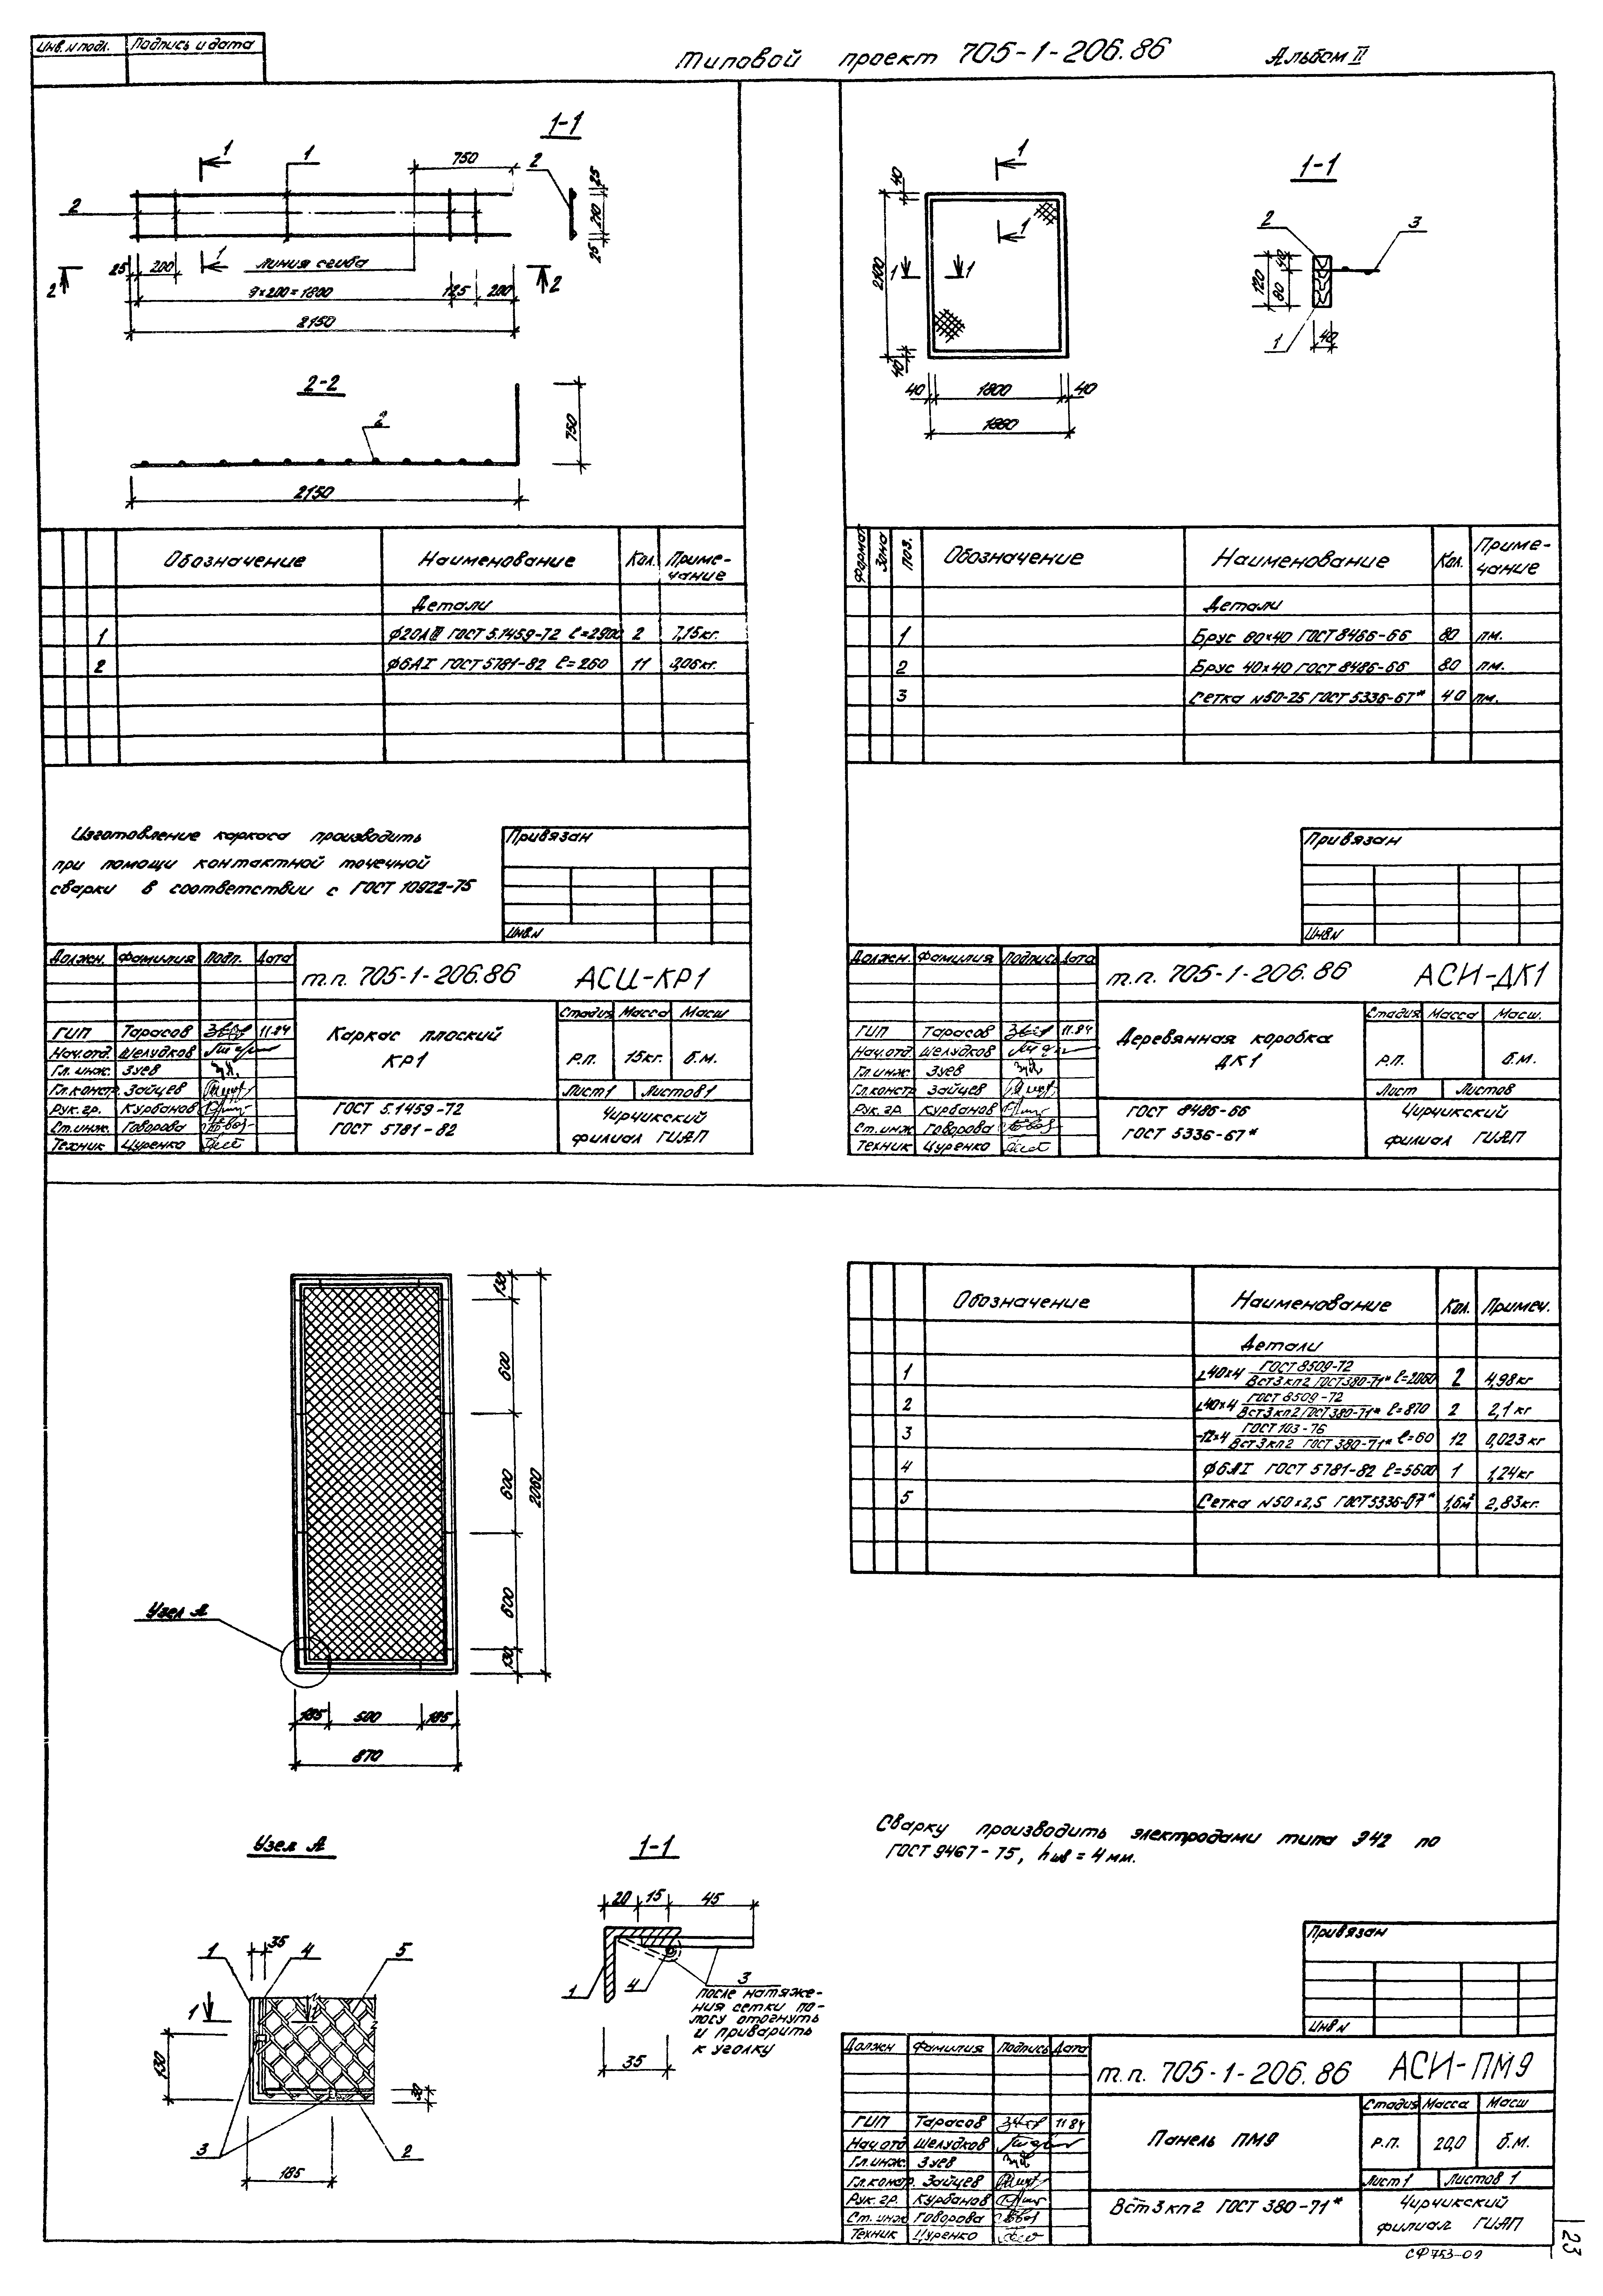 Инв. N подл. Подпись и дата
Типовой проект 705-1-206.86 Альбом II
1-1
1 1 750 2
2
25 210 25
25 200 1 линия сгиба
2 9×200=1800 125 200 2
2150
2-2
2
750
2150
Обозначение Наименование Кол. Приме-
чание
Детали
1 ϕ20АIII ГОСТ 5.1459-72 ℓ=2900 2 7,15кг.
2 ϕ6АI ГОСТ 5781-82 ℓ=260 11 0,06кг.
Изготовление каркаса производить
при помощи контактной точечной
сварки в соответствии с ГОСТ 10922-75
Привязан
Инв.N
Должн. Фамилия Подп. Дата
т.п. 705-1-206.86 АСИ-КР1
Каркас плоский
КР1
Стадия Масса Масш
Р.П. 15кг. б.м.
Лист 1 Листов 1
ГИП Тарасов 11.84
Нач.отд. Шелудков
Гл.инж. Зуев
Гл.констр. Зайцев
Рук.гр. Курбанов
Ст.инж. Говорова
Техник Цуренко
ГОСТ 5.1459-72
ГОСТ 5781-82
Чирчикский
филиал ГИАП
1 1-1
40
2100
1 1 1
40
40 1800 40
1880
2 3
120 40 80
1 40
Формат Зона Поз. Обозначение Наименование Кол. Приме-
чание
Детали
1 Брус 80×40 ГОСТ 8486-66 8.0 пм.
2 Брус 40×40 ГОСТ 8486-66 8.0 пм.
3 Сетка N50-25 ГОСТ 5336-67* 4.0 пм.
Привязан
Инв.N
Должн. Фамилия Подпись Дата
т.п. 705-1-206.86 АСИ-ДК1
Деревянная коробка
ДК1
Стадия Масса Масш.
Р.П. б.м.
Лист Листов
ГИП Тарасов 11.84
Нач.отд Шелудков
Гл.инж. Зуев
Гл.констр Зайцев
Рук.гр. Курбанов
Ст.инж Говорова
Техник Цуренко
ГОСТ 8486-66
ГОСТ 5336-67*
Чирчикский
филиал ГИАП
130
600
600 2060
600
130
Узел А
185 500 185
870
Обозначение Наименование Кол. Примеч.
Детали
1 ∟40×4 ГОСТ 8509-72 / Вст3кп2 ГОСТ380-71* ℓ=2060 2 4,98кг
2 ∟40×4 ГОСТ 8509-72 / Вст3кп2 ГОСТ380-71* ℓ=870 2 2,1кг
3 -12×4 ГОСТ 103-76 / Вст3кп2 ГОСТ 380-71* ℓ=60 12 0,023кг
4 ϕ6АI ГОСТ 5781-82 ℓ=5600 1 1,24кг
5 Сетка N50×2,5 ГОСТ5336-67* 1,6м² 2,83кг.
Сварку производить электродами типа Э42 по
ГОСТ 9467-75, hшв=4мм.
Узел А
1 35 4 5
1
130
30
3 2
185
1-1
20 15 45
1 4 3
после натяже-
ния сетки по-
лосу отогнуть
и приварить
к уголку
35
Привязан
Инв N
Должн Фамилия Подпись Дата
т.п. 705-1-206.86 АСИ-ПМ9
Панель ПМ9
Стадия Масса Масш
Р.П. 20,0 б.м.
Лист 1 Листов 1
ГИП Тарасов 11 84
Нач.отд Шелудков
Гл.инж. Зуев
Гл.констр. Зайцев
Рук.гр. Курбанов
Ст.инж Говорова
Техник Цуренко
Вст3кп2 ГОСТ 380-71*
Чирчикский
филиал ГИАП
СФ753-02
23